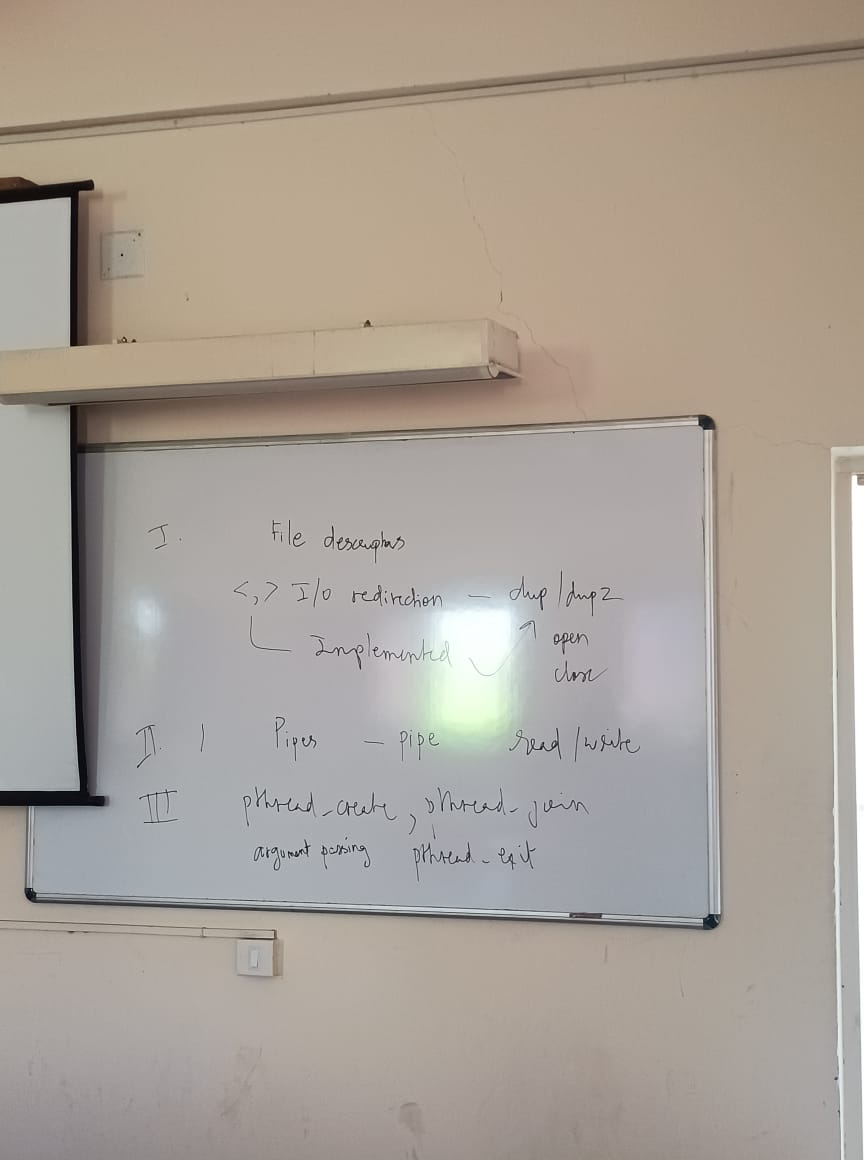 I. File descriptors
<,> I/O redirection - dup/dup2
Implemented open
close
II. | Pipes - pipe read/write
III pthread_create, pthread_join
argument passing pthread_exit